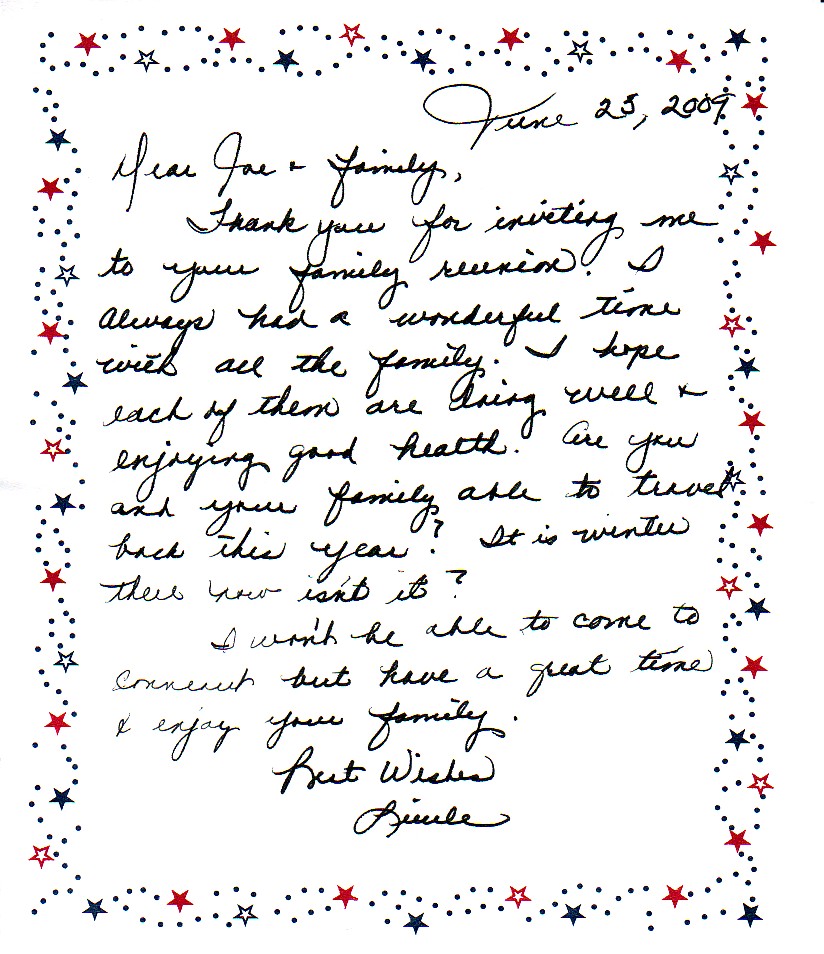 June 23, 2009
Dear Joe & family,
Thank you for inviting me
to your family reunion. I
always had a wonderful time
with all the family. I hope
each of them are doing well &
enjoying good health. Are you
and your family able to travel
back this year? It is winter
there now isn't it?
I won't be able to come to
but have a great time
& enjoy your family.
Best Wishes